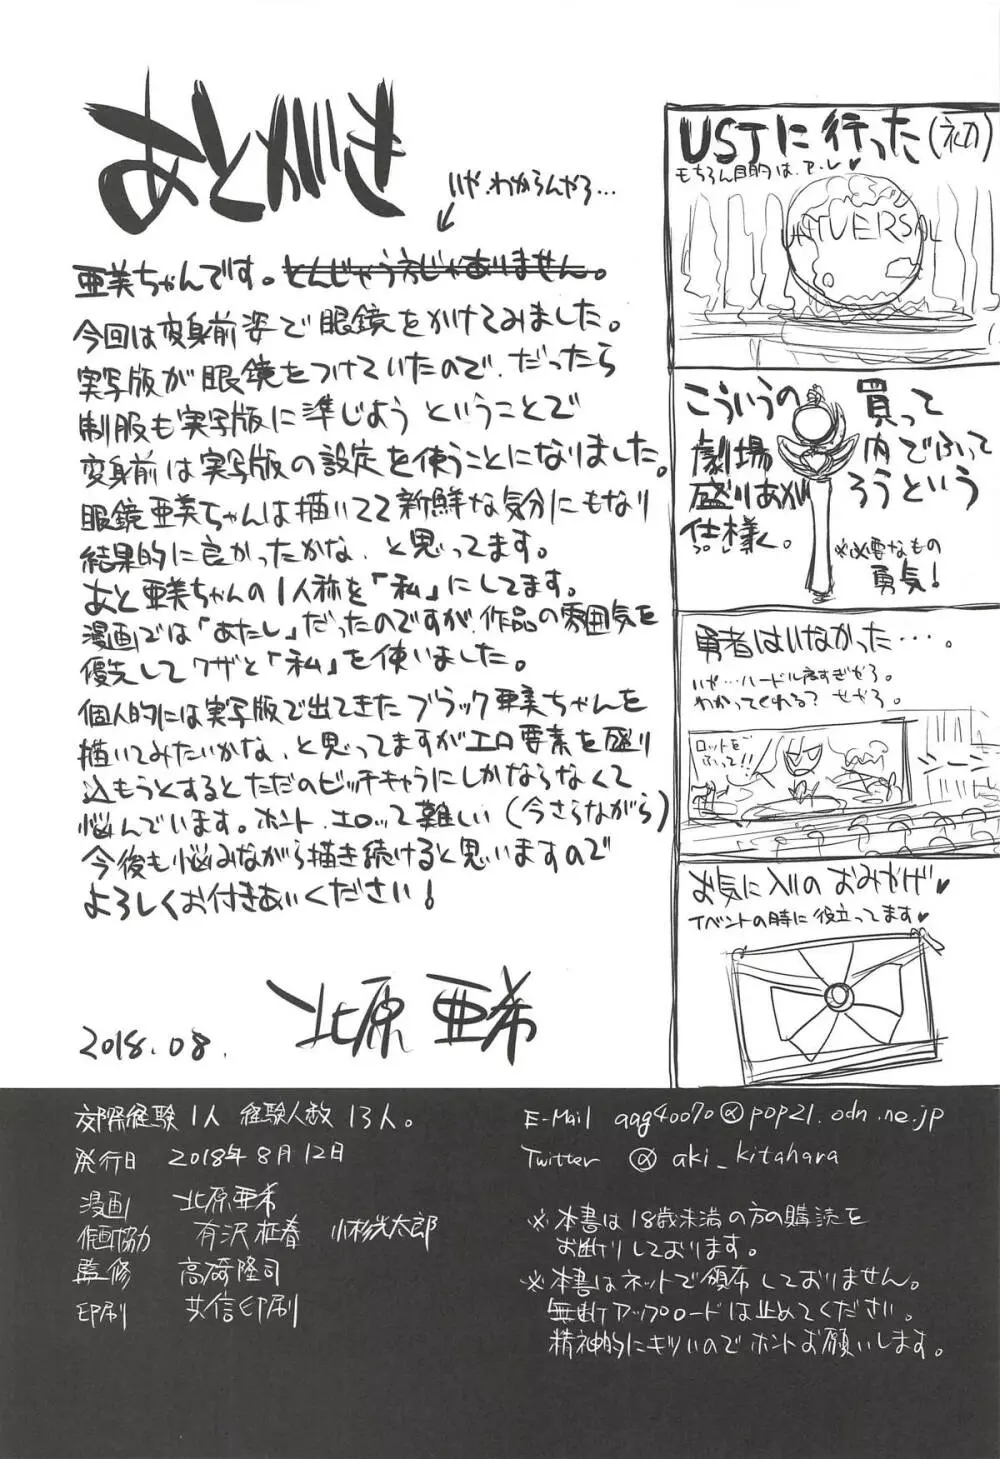 あとがき
いや、わからんやろ…
亜美ちゃんです。とんじゃう方じゃありません。
今回は変身前姿で眼鏡をかけてみました。
実写版が眼鏡をつけていたので、だったら
制服も実写版に準じよう ということで
変身前は実写版の設定を使うことになりました。
眼鏡亜美ちゃんは描いてて新鮮な気分にもなり
結果的に良かったかな、と思ってます。
あと亜美ちゃんの1人称を「私」にしてます。
漫画では「あたし」だったのですが、作品の雰囲気を
優先してワザと「私」を使いました。
個人的には実写版で出てきたブラック亜美ちゃんを
描いてみたいかな、と思ってますがエロ要素を盛り
込もうとするとただのビッチキャラにしかならなくて
悩んでいます。ホント、エロって難しい(今さらながら)
今後も悩みながら描き続けると思いますので
よろしくお付きあいください!
北原亜希
2018.08.
USJに行った(初)
もちろん目的は、ア・レ♥
UNIVERSAL
こういうの買って
劇場内でふって
盛りあがろうという
仕様。
※必要なもの
勇気!
勇者はいなかった・・・。
いや…ハードル高すぎやろ。
わかってくれる? せやろ。
ロッドを
ふって!!
シーン
お気に入りのおみやげ♥
イベントの時に役立ってます♥
交際経験1人 経験人数13人。
発行日 2018年8月12日
漫画 北原亜希
作画協力 有沢柾春 小杉光太郎
監修 高崎隆司
印刷 共信印刷
E-Mail aag40070@pop21.odn.ne.jp
Twitter @aki_kitahara
※本書は18歳未満の方の購読を
お断りしております。
※本書はネットで頒布しておりません。
無断アップロードは止めてください。
精神的にキツいのでホントお願いします。